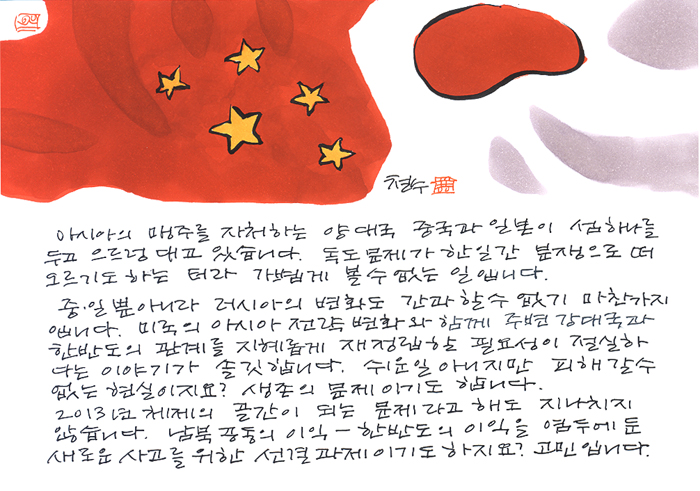 철수
아시아의 맹주를 자처하는 양 대국 중국과 일본이 섬하나를
두고 으르렁 대고 있습니다. 독도문제가 한일간 분쟁으로 떠
오르기도 하는 터라 가볍게 볼수 없는 일입니다.
중·일 뿐아니라 러시아의 변화도 간과 할수 없기 마찬가지
입니다. 미국의 아시아 전략 변화와 함께 주변 강대국과
한반도의 관계를 지혜롭게 재정립할 필요성이 절실하
다는 이야기가 솔깃합니다. 쉬운일 아니지만 피해갈수
없는 현실이지요? 생존의 문제이기도 합니다.
2013년 체제의 골간이 되는 문제라고 해도 지나치지
않습니다. 남북 공동의 이익 – 한반도의 이익을 염두에 둔
새로운 사고를 위한 선결과제이기도 하지요? 고민입니다.